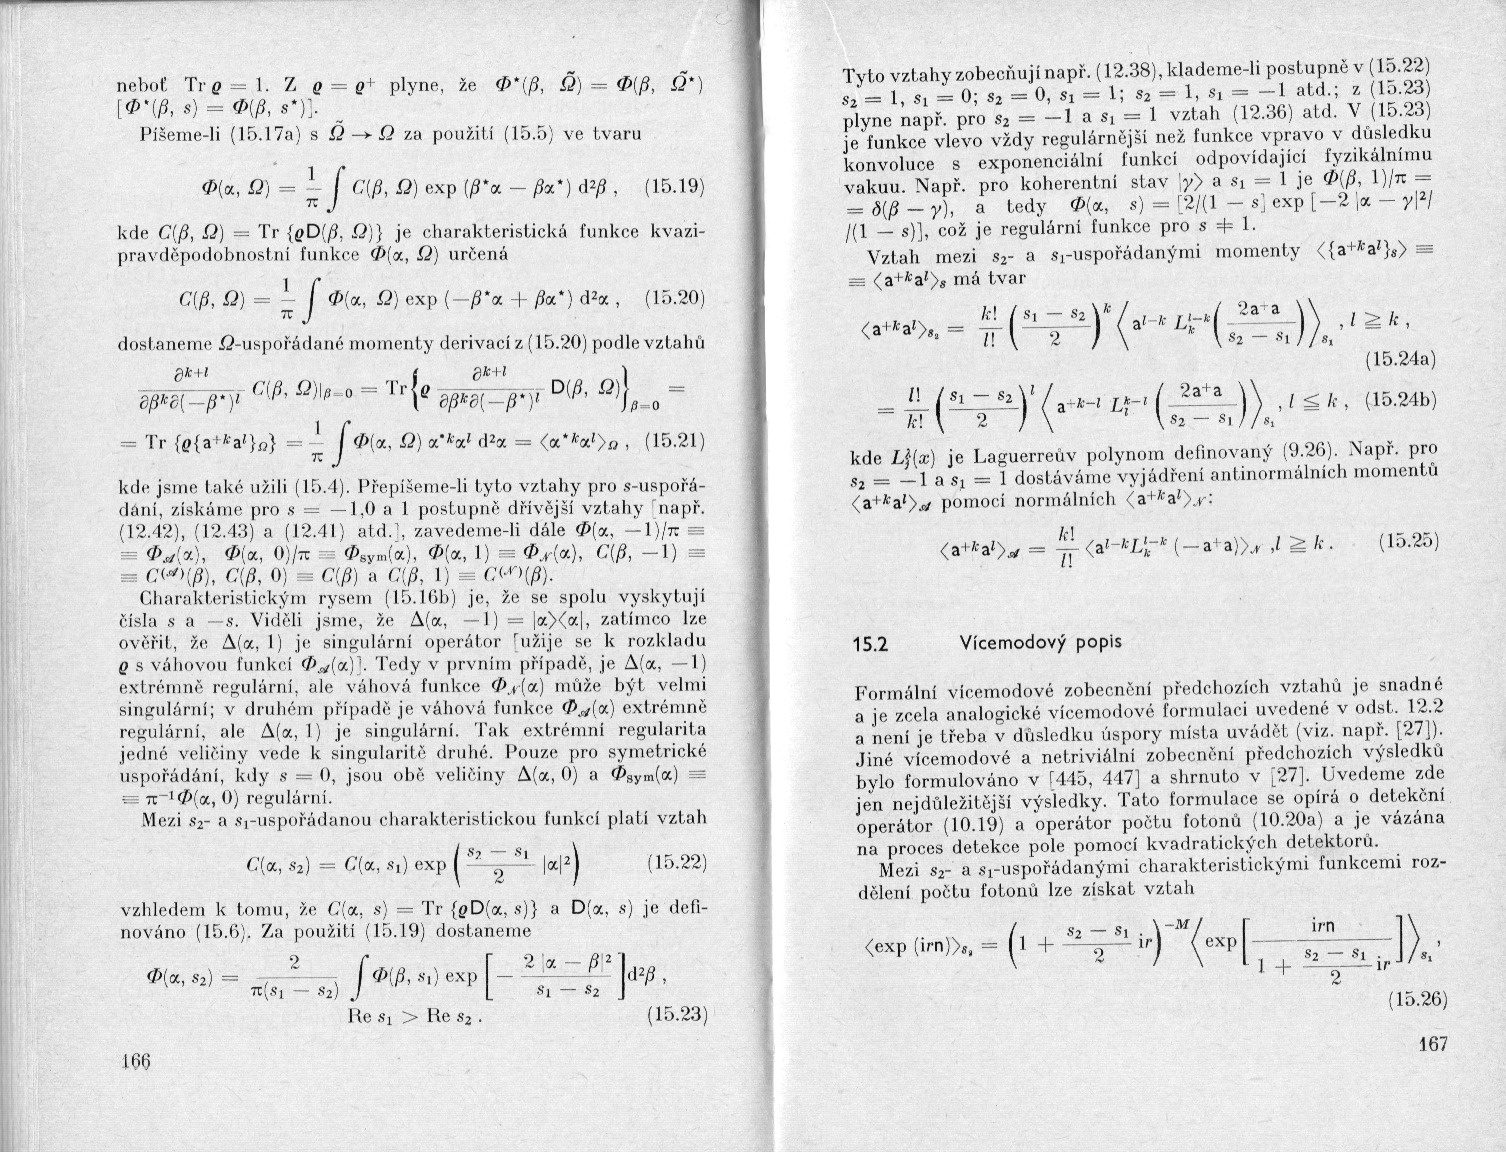 neboť Tr ϱ = 1. Z ϱ = ϱ⁺ plyne, že Φ*(β, Ω̃) = Φ(β, Ω̃*)
[Φ*(β, s) = Φ(β, s*)].
Píšeme-li (15.17a) s Ω̃ → Ω za použití (15.5) ve tvaru
Φ(α, Ω) = 1/π ∫ C(β, Ω) exp (β*α − βα*) d²β , (15.19)
kde C(β, Ω) = Tr {ϱD(β, Ω)} je charakteristická funkce kvazi-
pravděpodobnostní funkce Φ(α, Ω) určená
C(β, Ω) = 1/π ∫ Φ(α, Ω) exp (−β*α + βα*) d²α , (15.20)
dostaneme Ω-uspořádané momenty derivací z (15.20) podle vztahů
∂ᵏ⁺ˡ/∂βᵏ∂(−β*)ˡ C(β, Ω)|β=0 = Tr{ϱ ∂ᵏ⁺ˡ/∂βᵏ∂(−β*)ˡ D(β, Ω)}β=0 =
= Tr {ϱ{a⁺ᵏaˡ}Ω} = 1/π ∫ Φ(α, Ω) α*ᵏαˡ d²α = ⟨α*ᵏαˡ⟩Ω , (15.21)
kde jsme také užili (15.4). Přepíšeme-li tyto vztahy pro s-uspořá-
dání, získáme pro s = −1,0 a 1 postupně dřívější vztahy [např.
(12.42), (12.43) a (12.41) atd.], zavedeme-li dále Φ(α, −1)/π ≡
≡ Φ𝒜(α), Φ(α, 0)/π ≡ Φsym(α), Φ(α, 1) ≡ Φ𝒩(α), C(β, −1) ≡
≡ C⁽𝒜⁾(β), C(β, 0) ≡ C(β) a C(β, 1) ≡ C⁽𝒩⁾(β).
Charakteristickým rysem (15.16b) je, že se spolu vyskytují
čísla s a −s. Viděli jsme, že Δ(α, −1) = |α⟩⟨α|, zatímco lze
ověřit, že Δ(α, 1) je singulární operátor [užije se k rozkladu
ϱ s váhovou funkcí Φ𝒜(α)]. Tedy v prvním případě, je Δ(α, −1)
extrémně regulární, ale váhová funkce Φ𝒩(α) může být velmi
singulární; v druhém případě je váhová funkce Φ𝒜(α) extrémně
regulární, ale Δ(α, 1) je singulární. Tak extrémní regularita
jedné veličiny vede k singularitě druhé. Pouze pro symetrické
uspořádání, kdy s = 0, jsou obě veličiny Δ(α, 0) a Φsym(α) ≡
≡ π⁻¹Φ(α, 0) regulární.
Mezi s₂- a s₁-uspořádanou charakteristickou funkcí platí vztah
C(α, s₂) = C(α, s₁) exp ( (s₂ − s₁)/2 |α|² ) (15.22)
vzhledem k tomu, že C(α, s) = Tr {ϱD(α, s)} a D(α, s) je defi-
nováno (15.6). Za použití (15.19) dostaneme
Φ(α, s₂) = 2/π(s₁ − s₂) ∫ Φ(β, s₁) exp [ − 2 |α − β|²/(s₁ − s₂) ] d²β ,
Re s₁ > Re s₂ . (15.23)
166
Tyto vztahy zobecňují např. (12.38), klademe-li postupně v (15.22)
s₂ = 1, s₁ = 0; s₂ = 0, s₁ = 1; s₂ = 1, s₁ = −1 atd.; z (15.23)
plyne např. pro s₂ = −1 a s₁ = 1 vztah (12.36) atd. V (15.23)
je funkce vlevo vždy regulárnější než funkce vpravo v důsledku
konvoluce s exponenciální funkcí odpovídající fyzikálnímu
vakuu. Např. pro koherentní stav |γ⟩ a s₁ = 1 je Φ(β, 1)/π =
= δ(β − γ), a tedy Φ(α, s) = [2/(1 − s] exp [−2 |α − γ|²/
/(1 − s)], což je regulární funkce pro s ≠ 1.
Vztah mezi s₂- a s₁-uspořádanými momenty ⟨{a⁺ᵏaˡ}ₛ⟩ ≡
≡ ⟨a⁺ᵏaˡ⟩ₛ má tvar
⟨a⁺ᵏaˡ⟩s₂ = k!/l! ( (s₁ − s₂)/2 )ᵏ ⟨ aˡ⁻ᵏ Lₖˡ⁻ᵏ ( 2a⁺a/(s₂ − s₁) ) ⟩s₁ , l ≧ k ,
(15.24a)
= l!/k! ( (s₁ − s₂)/2 )ˡ ⟨ a⁺ᵏ⁻ˡ Lₗᵏ⁻ˡ ( 2a⁺a/(s₂ − s₁) ) ⟩s₁ , l ≦ k , (15.24b)
kde Lⱼᵏ(x) je Laguerreův polynom definovaný (9.26). Např. pro
s₂ = −1 a s₁ = 1 dostáváme vyjádření antinormálních momentů
⟨a⁺ᵏaˡ⟩𝒜 pomocí normálních ⟨a⁺ᵏaˡ⟩𝒩:
⟨a⁺ᵏaˡ⟩𝒜 = k!/l! ⟨aˡ⁻ᵏLₖˡ⁻ᵏ (−a⁺a)⟩𝒩 ,l ≧ k . (15.25)
15.2 Vícemodový popis
Formální vícemodové zobecnění předchozích vztahů je snadné
a je zcela analogické vícemodové formulaci uvedené v odst. 12.2
a není je třeba v důsledku úspory místa uvádět (viz. např. [27]).
Jiné vícemodové a netriviální zobecnění předchozích výsledků
bylo formulováno v [445, 447] a shrnuto v [27]. Uvedeme zde
jen nejdůležitější výsledky. Tato formulace se opírá o detekční
operátor (10.19) a operátor počtu fotonů (10.20a) a je vázána
na proces detekce pole pomocí kvadratických detektorů.
Mezi s₂- a s₁-uspořádanými charakteristickými funkcemi roz-
dělení počtu fotonů lze získat vztah
⟨exp (irn)⟩s₂ = ( 1 + (s₂ − s₁)/2 ir )⁻ᴹ ⟨ exp [ irn/(1 + (s₂ − s₁)/2 ir) ] ⟩s₁ ,
(15.26)
167